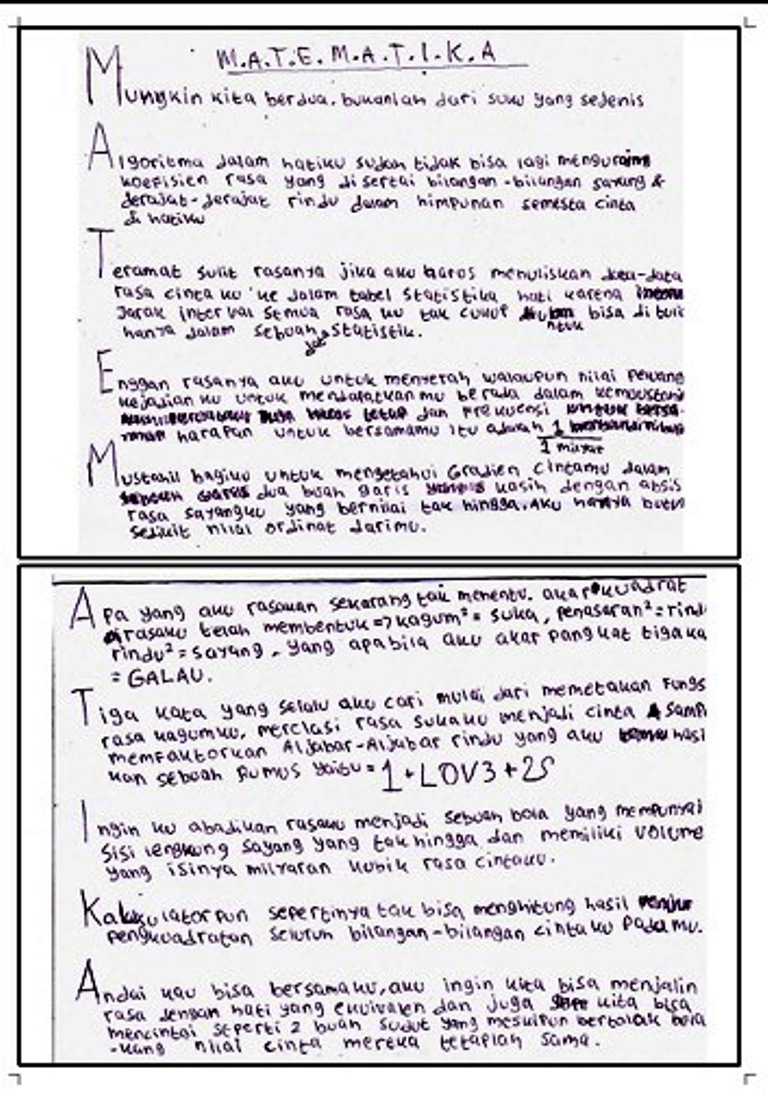 M.A.T.E.M.A.T.I.K.A
Mungkin kita berdua. bukanlah dari suku yang sejenis
Algoritma dalam hatiku sudah tidak bisa lagi mengurai
koefisien rasa yang disertai bilangan-bilangan sayang &
derajat-derajat rindu dalam himpunan semesta cinta
di hatiku
Teramat sulit rasanya jika aku harus menuliskan data-data
rasa cinta ku ke dalam tabel statistika hati karena
Jarak interval semua rasa ku tak cukup untuk bisa di tulis
hanya dalam sebuah statistik.
Enggan rasanya aku untuk menyerah walaupun nilai peluang
kejadian ku untuk mendapatkan mu berada dalam
dan frekuensi
harapan untuk bersamamu itu adalah 1
1 milyar
Mustahil bagiku untuk mengetahui Gradien cintamu dalam
dua buah garis kasih dengan absis
rasa sayangku yang bernilai tak hingga. Aku hanya butuh
sedikit nilai ordinat darimu.
Apa yang aku rasakan sekarang tak menentu. akar kuadrat
rasaku telah membentuk => kagum² = suka, penasaran² = rindu
rindu² = sayang, yang apabila aku akar pangkat tiga ka
= GALAU.
Tiga kata yang selalu aku cari mulai dari memetakan Fungs
rasa kagumku, merelasi rasa sukaku menjadi cinta & samp
memfaktorkan Aljabar-Aljabar rindu yang aku hasi
kan sebuah Rumus yaitu = 1+LOV3+2S
Ingin ku abadikan rasaku menjadi sebuah bola yang mempunyai
sisi lengkung sayang yang tak hingga dan memiliki volume
yang isinya milyaran kubik rasa cintaku.
Kalkulator pun sepertinya tak bisa menghitung hasil
pengkuadratan seluruh bilangan-bilangan cinta ku padamu.
Andai kau bisa bersamaku, aku ingin kita bisa menjalin
rasa dengan hati yang ekuivalen dan juga kita bisa
mencintai seperti 2 buah sudut yang meskipun bertolak bela
-kang nilai cinta mereka tetaplah sama.